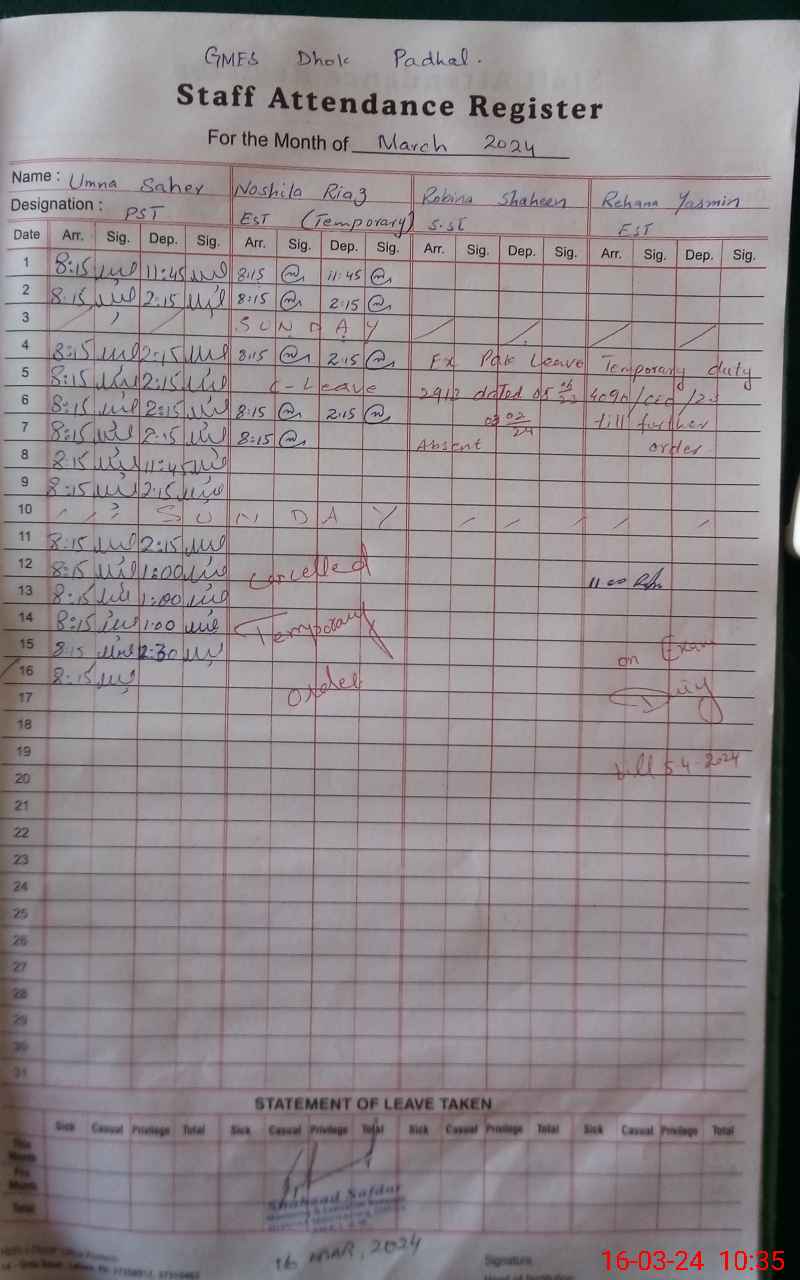 GMES Dhok Padhal.
Staff Attendance Register
For the Month of March 2024
Name : Umna Saher Noshila Riaz Robina Shaheen Rehana Yasmin
Designation : PST EST (Temporary) S.ST EST
Date Arr. Sig. Dep. Sig. Arr. Sig. Dep. Sig. Arr. Sig. Dep. Sig. Arr. Sig. Dep. Sig.
1 8:15 11:45 8:15 11:45
2 8:15 2:15 8:15 2:15
3 SUNDAY
4 8:15 2:15 8:15 2:15 Ex Pak Leave Temporary duty
5 8:15 2:15 C-Leave 2912 dated 05
6 8:15 2:15 8:15 2:15 till further
7 8:15 2:15 8:15 Absent order
8 8:15 11:45
9 8:15 2:15
10 SUNDAY
11 8:15 2:15
12 8:15 1:00 Cancelled 11:00
13 8:15 1:00
14 8:15 1:00 Temporary
15 8:15 2:30 on Exam
16 8:15 order Duty
17
18
19 till 5-4-2024
20
21
22
23
24
25
26
27
28
29
30
31
STATEMENT OF LEAVE TAKEN
Sick Casual Privilege Total Sick Casual Privilege Total Sick Casual Privilege Total Sick Casual Privilege Total
This Month
Pre Month
Total
Shahzad Safdar
16 MAR, 2024
Signature
16-03-24 10:35